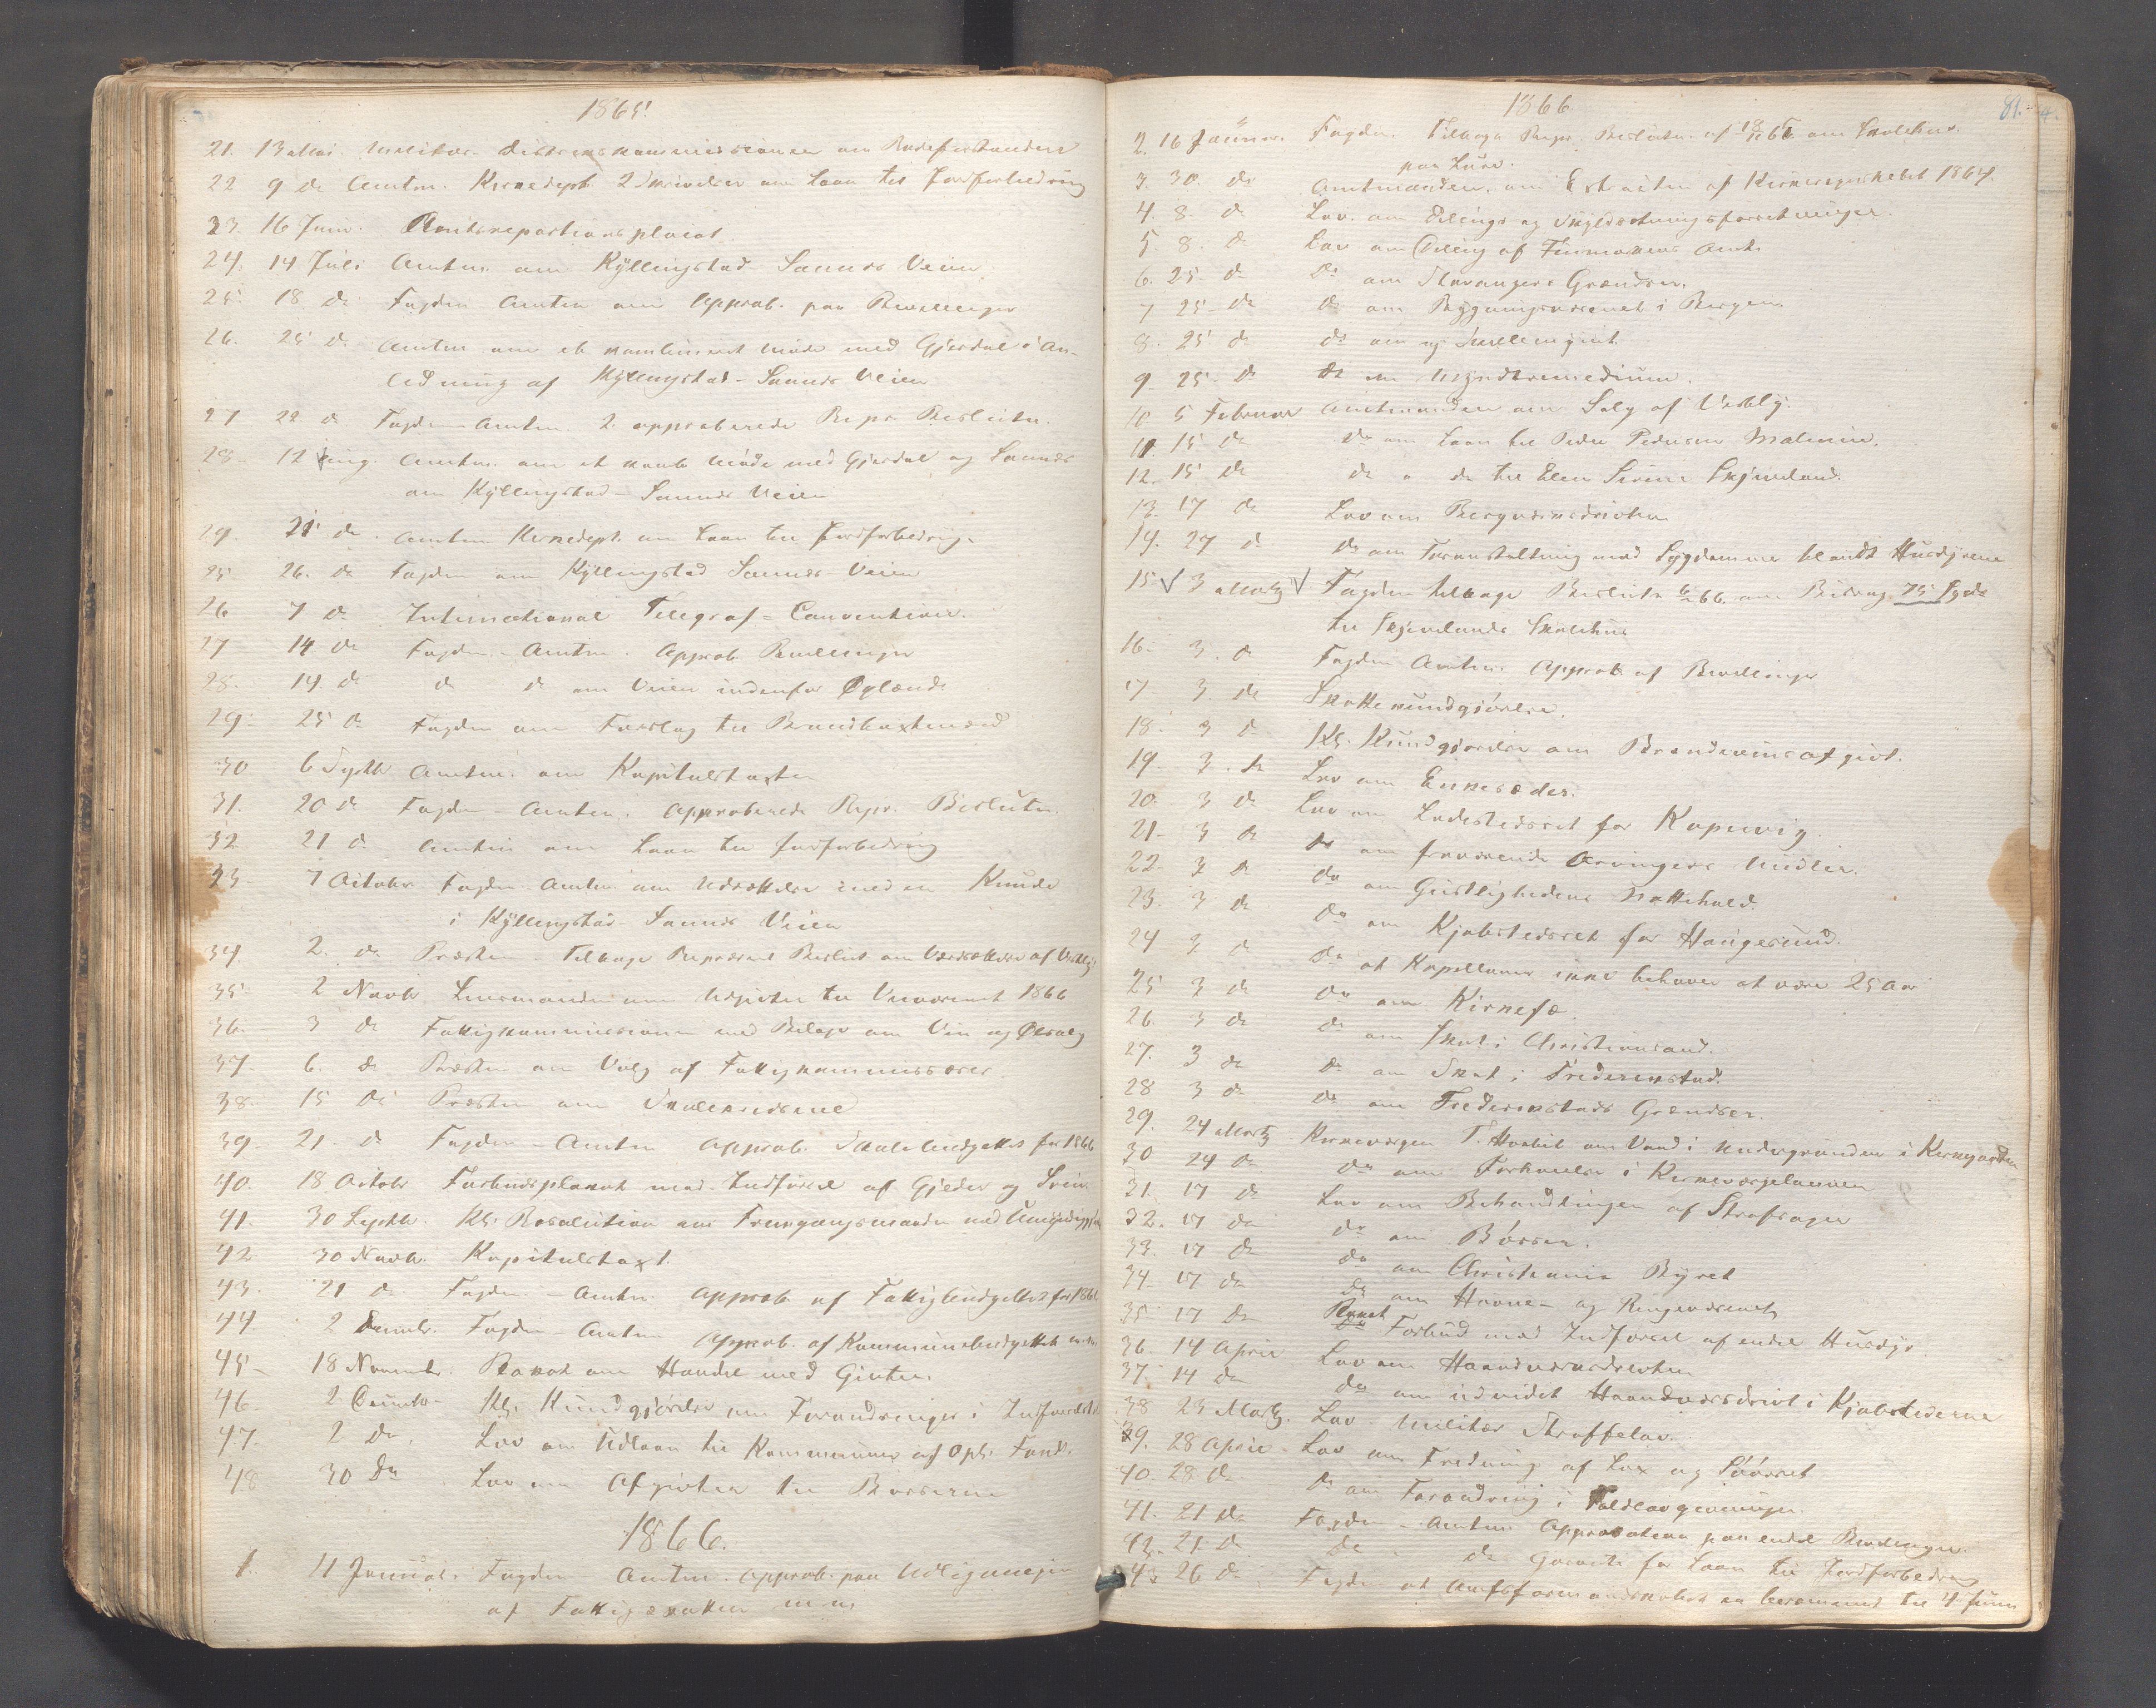 1865.
21. 13 Mai. Militær-Districtskommissionen om Rodeforstandere
22 9 do Amtm. Kirkedept. 2 Skrivelser om Laan til Jordforbedring
23. 16 Juni. Amtsrepartionsplacat
24. 14 Juli Amtm. om Kyllingstad-Sannes Veien
25 18 do Fogden-Amtm om Approb. paa Bevillinger
26. 25 do Amtm om et kombineret Møde med Gjesdal i An-
ledning af Kyllingstad-Sannes Veien
27 22 do Fogden-Amtm 2 approberede Repr. Beslutn.
28- 12 Aug. Amtm. om et komb. Møde med Gjesdal og Sannes
om Kyllingstad-Sannes Veien
29. 21 do. Amtm Kirkedept. om Laan til Jordforbedring
25 26. do Fogden om Kyllingstad Sannes Veien
26 7 do International Telegraf-Convention.
27 14 do Fogden-Amtm. Approb. Bevillinger
28. 14. do do do om Veien indenfor Øglænd
29. 25 do Fogden om Forslag til Brandtaxtmænd
30 6 Septbr Amtm. om Kapitelstaxten
31. 20 do Fogden-Amtm. Approberede Repr. Beslutn.
32 21 do Amtm om Laan til Jordforbedring
33- 7 Octobr Fogden-Amtm om Udsættelse med en Knude
i Kyllingstad-Sannes Veien
34. 2. do Præsten Tilbage Repræsent. Beslut. om Værdsættelse af Vatly
35. 2 Novbr Lensmanden om Udgifter til Veivæsenet 1866
36. 3 do Fattigkommissionen med Bilage om Vin og Ølsalg
37. 6. do Præsten om Valg af Fattigkommissærer
38. 15 do Præsten om Skolekredsene
39. 21- do Fogden-Amtm Approb. Skolebudgettet for 1866
40. 18 Octobr Forbudsplakat mod Indførsel af Gjeder og Sviin
41. 30 Septbr. Kgl. Resolution om Fremgangsmaade ved
42 30 Novbr. Kapitelstaxt.
43. 21 do Fogden-Amtm Approb. af Fattigbudgettet for 1866
44 2 Decmbr. Fogden-Amtm Approb. af Kommunebudgettet m.m.
45- 18 Novembr. Plakat om Handel med Gifter.
46- 2 Decmbr- Kgl. Kundgjørelse om Forandringer i
47. 2 do. Lov om Udlaan til Kommuner af Opl. Fond.
48 30 do Lov om Afgivten til Byssserne
1866.
1. 11 Januar. Fogden Amtm. Approb. paa Udligningen
af Fattigskatten m.m.
1866. 81.
2. 16 Januar. Fogden Tilbage Repr. Beslutn. af om Skolehus
paa Lure.
3. 30. do Amtmanden om Extracter af Kirkeregnskabet 1864.
4. 8. do Lov. om Delings og Skyldsætningsforretninger.
5. 8. do Lov om Deling af Finmarkens Amt.
6. 25. do do om Stavangers Grændser.
7 25- do do om Bygningsvæsenet i Bergen
8. 25 do do om
9. 25. do do om Myndtremedium.
10 5 Februar Amtmanden om Salg af Vatly.
11. 15 do do om Laan til Peder Pedersen Malmin.
12. 15 do do " do til Elen Serine Skjæveland.
13. 17 do Lov om Bergværksdriften
14. 27 do do om Foranstaltning mod Sygdomme blandt Husdyrene
15. √ 3 Martz √ Fogden tilbage Beslutn. 66. om Bidrag 75 Spd.
til Skjævelands Skolehus
16- 3. do Fogden Amtm. Approb. af Bevillinger
17 3. do Skattekundgjørelse.
18. 3 do Kgl. Kundgjørelse om Brændevinsafgivt.
19- 3. do Lov om Enkesæder.
20. 3 do Lov om Ladestedsret for Kopervig.
21- 3 do do om fraværende Arvingers Midler.
22. 3 do do om Geistlighedens Nattehold.
23. 3 do do om Kjøbstedsret for Haugesund.
24 3 do do at Kapellaner ikke behøver at være 25 Aar
25 3 do do om Kirkefæ.
26. 3 do do om Skat i Christiansand.
27. 3 do do om Skat i Frederikstad.
28 3 do do om Frederikstads Grændser.
29. 24 Martz Kirkeværgen T. Hoabet om Vand i Undergrunden i Kirkegaarden
30 24 do do om Forholdet i Kirkeværgelønnen
31. 17 do Lov om Behandlingen af Strafsager
32. 17 do do om Børser.
33. 17 do do om Christiania Byret
34- 17 do do om Havne- og Ringevæsenet
35 17 do Plakat Forbud mod Indførsel af endel Husdyr.
36. 14 April Lov om Haandværksdriften
37. 14 do do om udvidet Haandværksdrivt i Kjøbstederne
38 23 Martz. Lov Militær Straffelov.
39. 28 April- Lov om Fredning af Lax og Søørret
40. 28 do do om Forandring i Toldlovgivningen.
41. 21 do Fogden-Amtm. Approbation paa endel Bevillinger
42. 21 do do do Garanti for Laan til Jordforbedring
43 26 do Fogden at Amtsformandskabet er berammet til 4 Juni